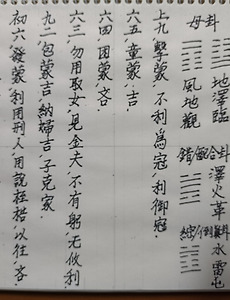 母卦
地澤臨
風地觀
錯/合卦
澤火革
綜/倒卦
水雷屯
上九擊蒙．不利為冠．利御冠．
六五童蒙．吉．
六四困蒙．吝．
六三勿用取女．見金夫．不有躬．无攸利
九二包蒙吉．納婦吉．子克家．
初六發蒙．利用刑人．用說在梏以往吝．